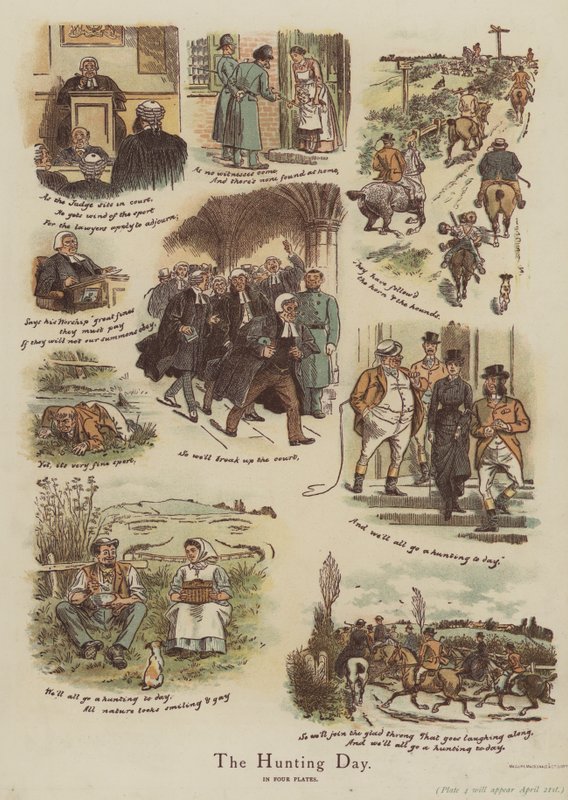 As the Judge sits in court,
He gets wind of the sport
For the lawyers apply to adjourn;
As no witnesses come,
And there's none found at home,
They have follow'd
the horn & the hounds.
Says his Worship "great fines
they must pay
If they will not our summons obey.
Yet, its very fine sport,
So we'll break up the court,
And we'll all go a hunting to day."
We'll all go a hunting to day.
All nature looks smiling & gay
So we'll join the glad throng That goes laughing along,
And we'll all go a hunting to day.
The Hunting Day.
IN FOUR PLATES.
(Plate 4 will appear April 21st.)